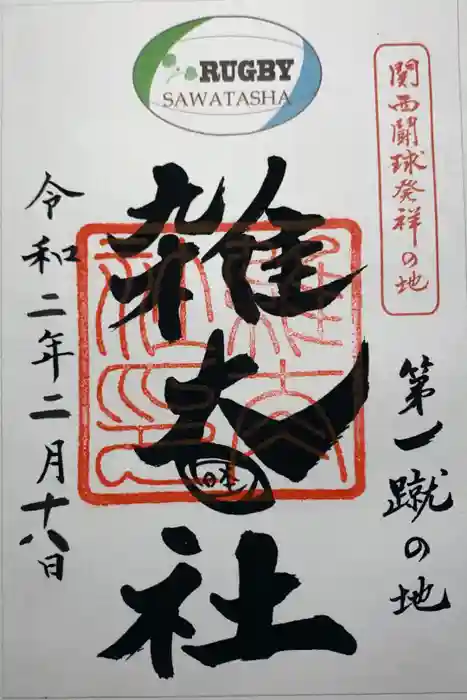 RUGBY
SAWATASHA
関西闘球発祥の地
第一蹴の地
雑太社
令和二年二月十八日